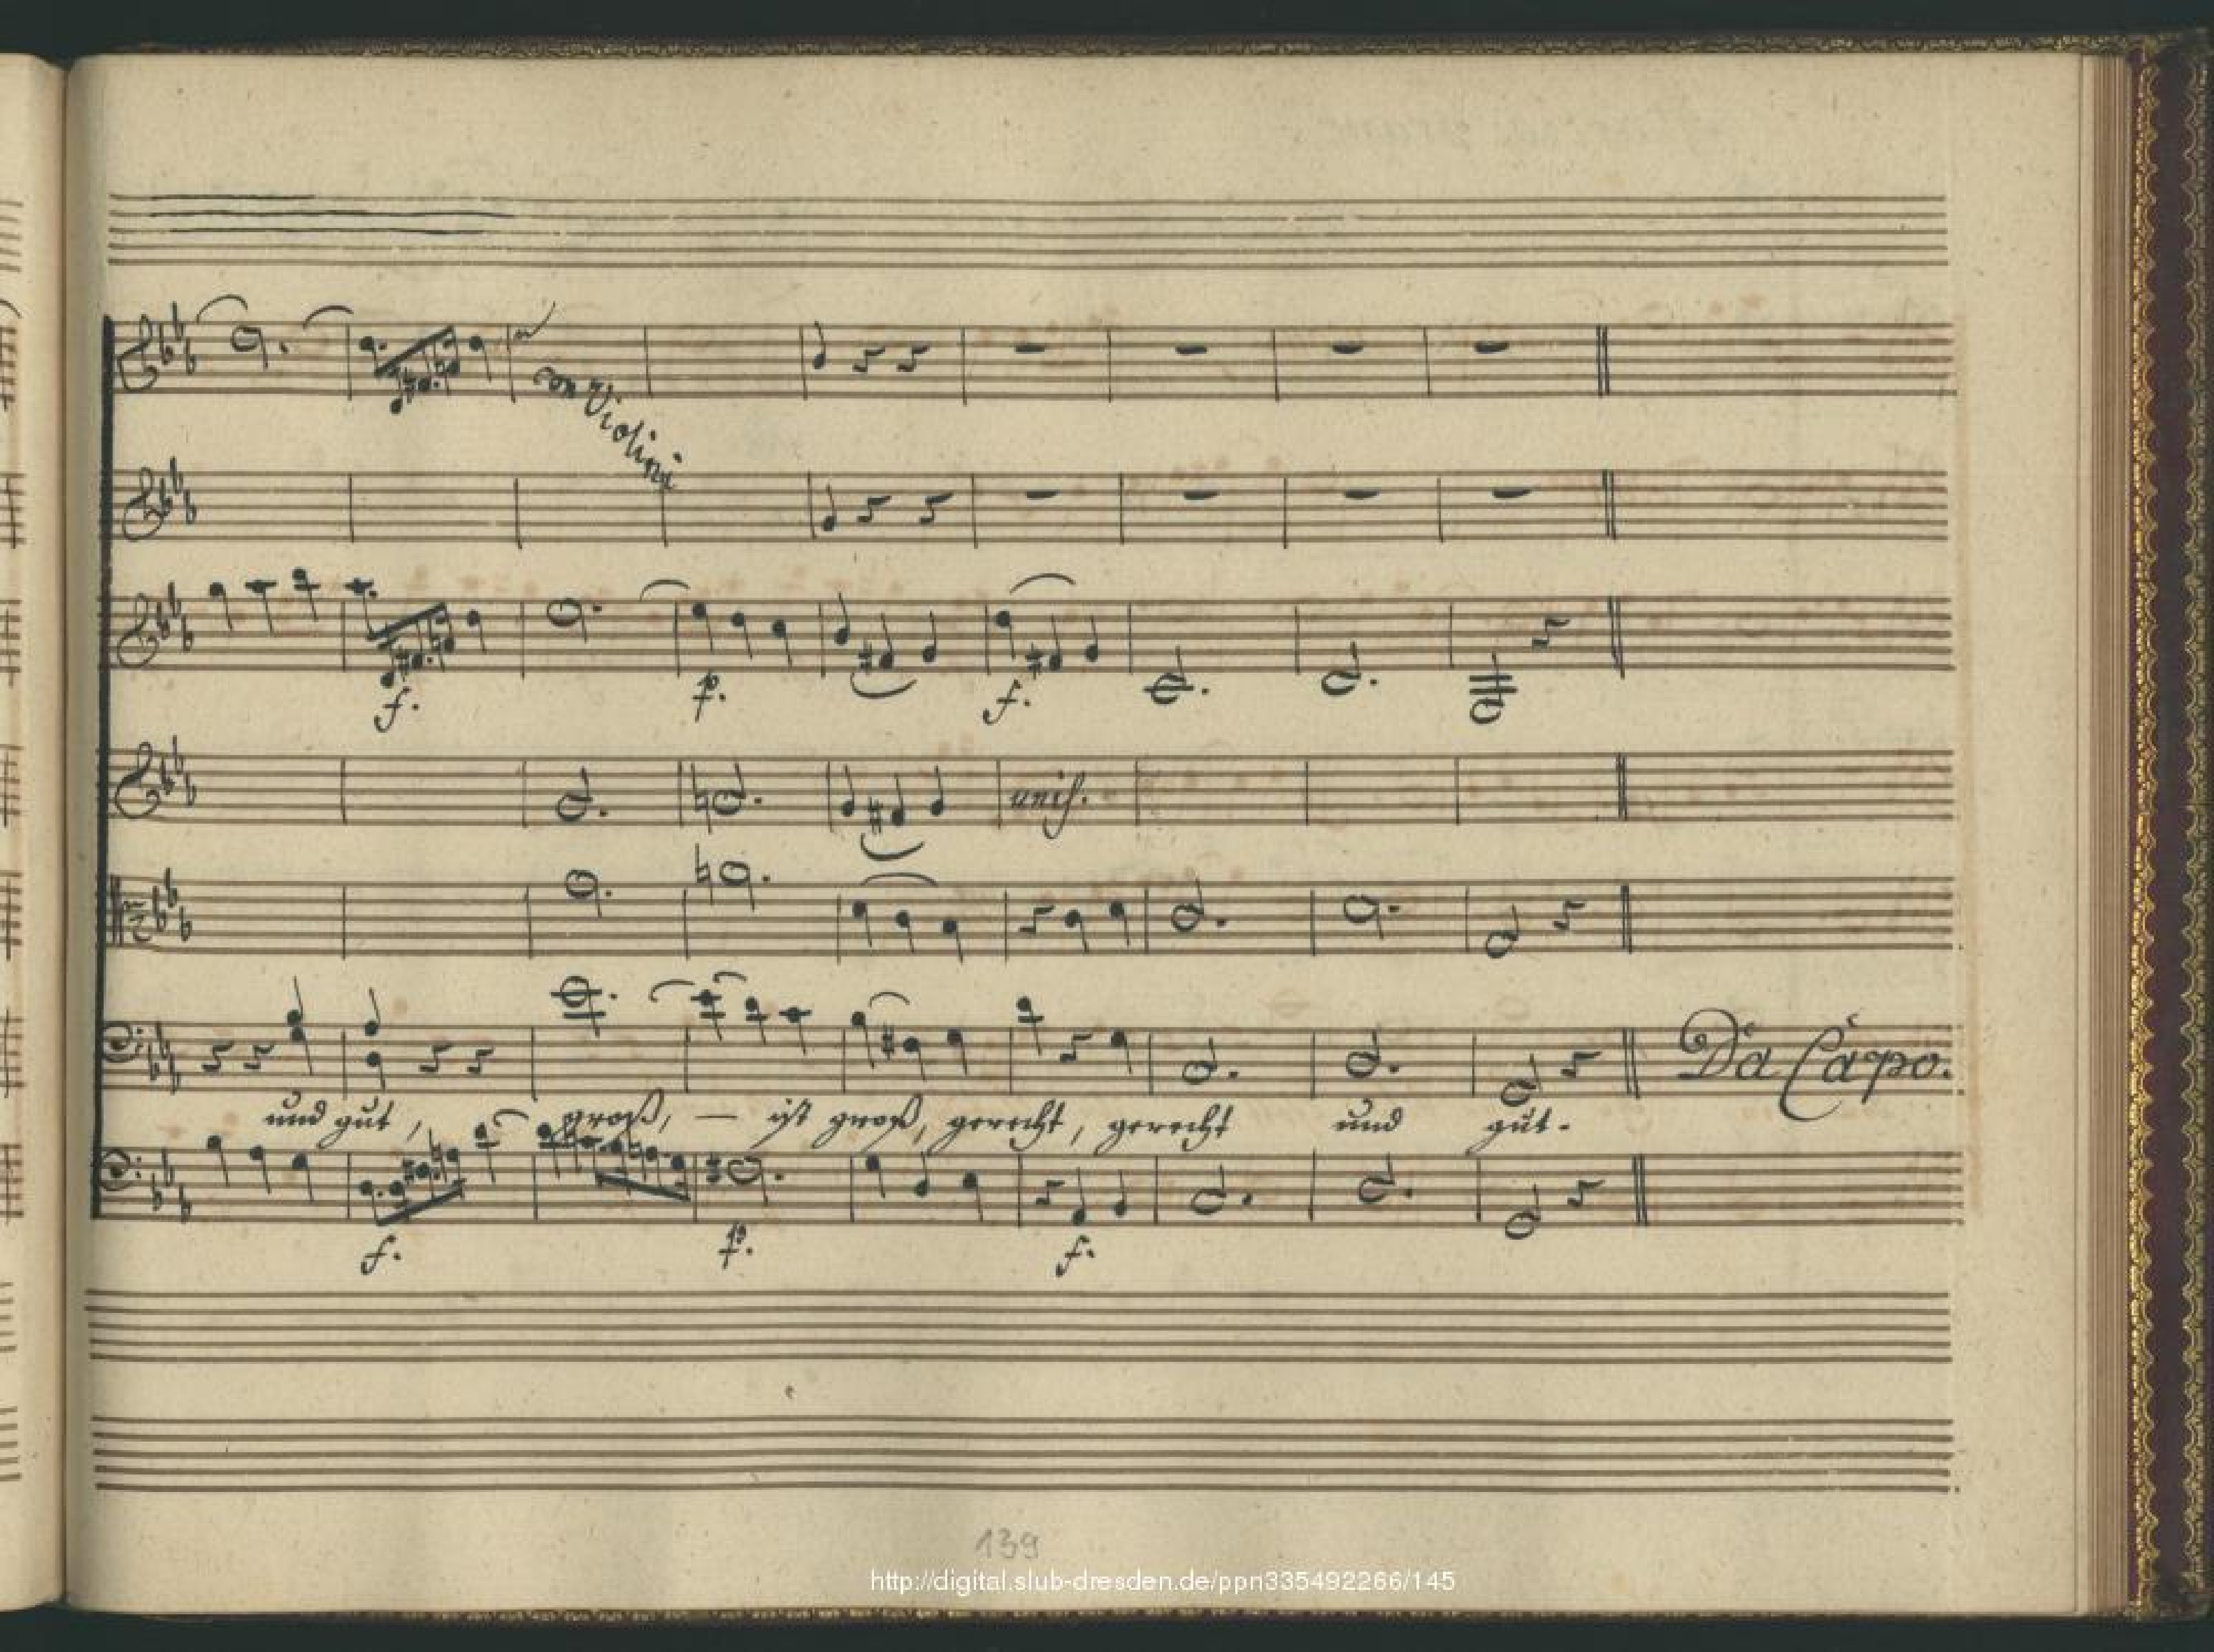 con Violini
f. p. f.
unis.
Da Capo.
und gut, groß, — ist groß, gerecht, gerecht und gut.
f. p. f.
139
http://digital.slub-dresden.de/ppn335492266/145